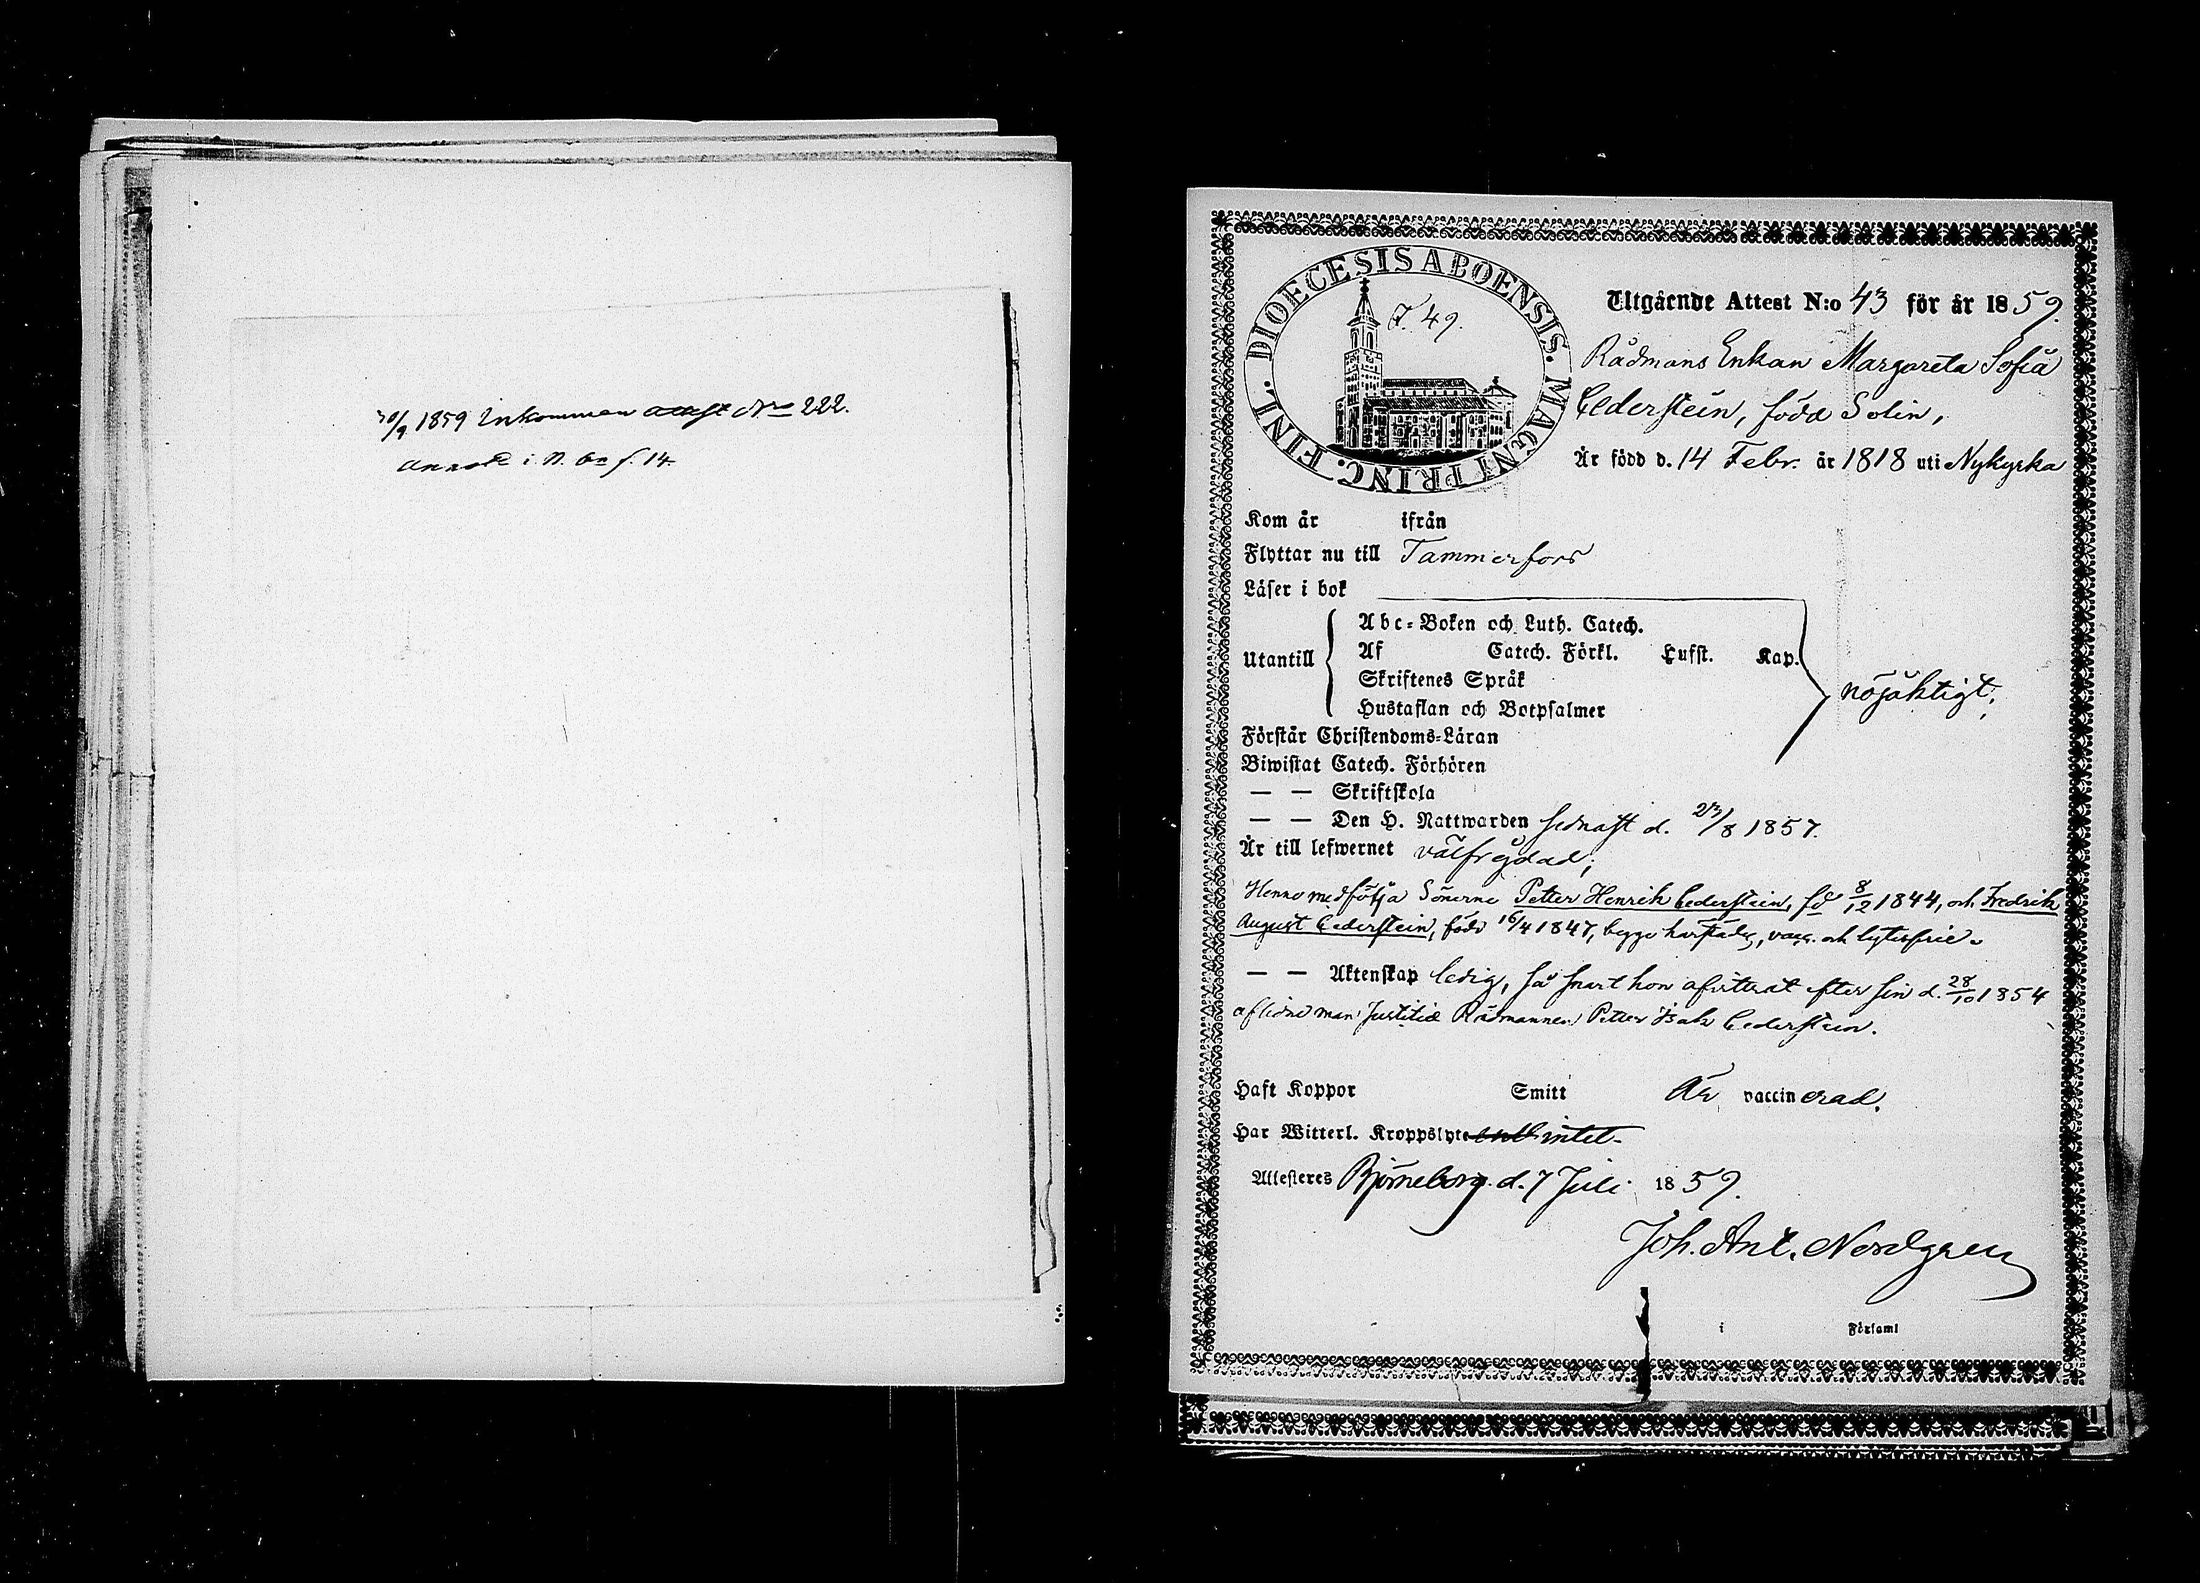 30/9 1859 Inkommen attest No 222.
annot i N. bn f. 14.
DIOECESIS ABOENSIS. MAGNI PRINC. FINL.
F. 49.
Utgående Attest N:o 43 för år 1859.
Rådmans Enkan Margareta Sofia
Cederstein, född Solin,
Är född d. 14 Febr. år 1818 uti Nykyrka
Kom år ifrån
Flyttar nu till Tammerfors
Läser i bok
Utantill
Abc-Boken och Luth. Catech.
Af Catech. Förkl. Lufst. Kap.
Skriftenes Språk
Hustaflan och Botpsalmer
nöjaktigt;
Förstår Christendoms-Läran
Biwistat Catech. Förhören
— — Skriftskola
— — Den H. Nattwarden sednast d. 23/8 1857.
Är till lefwernet välfrejdad;
Henne medfölja Sönerne Petter Henrik Cederstein, fd 8/12 1844, och Fredrik
August Cederstein, född 16/4 1847, begge härstädes, vacc. och lytesfrie.
— — Äktenskap ledig, så snart hon afvittrat efter sin d. 28/10 1854
aflidne man Justitiæ Rådmannen Petter Isak Cederstein.
Haft Koppor Smitt Är vaccinerad.
Har Witterl. Kroppslyte intet.
Attesteres Björneborg d. 7 Juli 1859.
Joh. Ant. Nordgren
i Församl